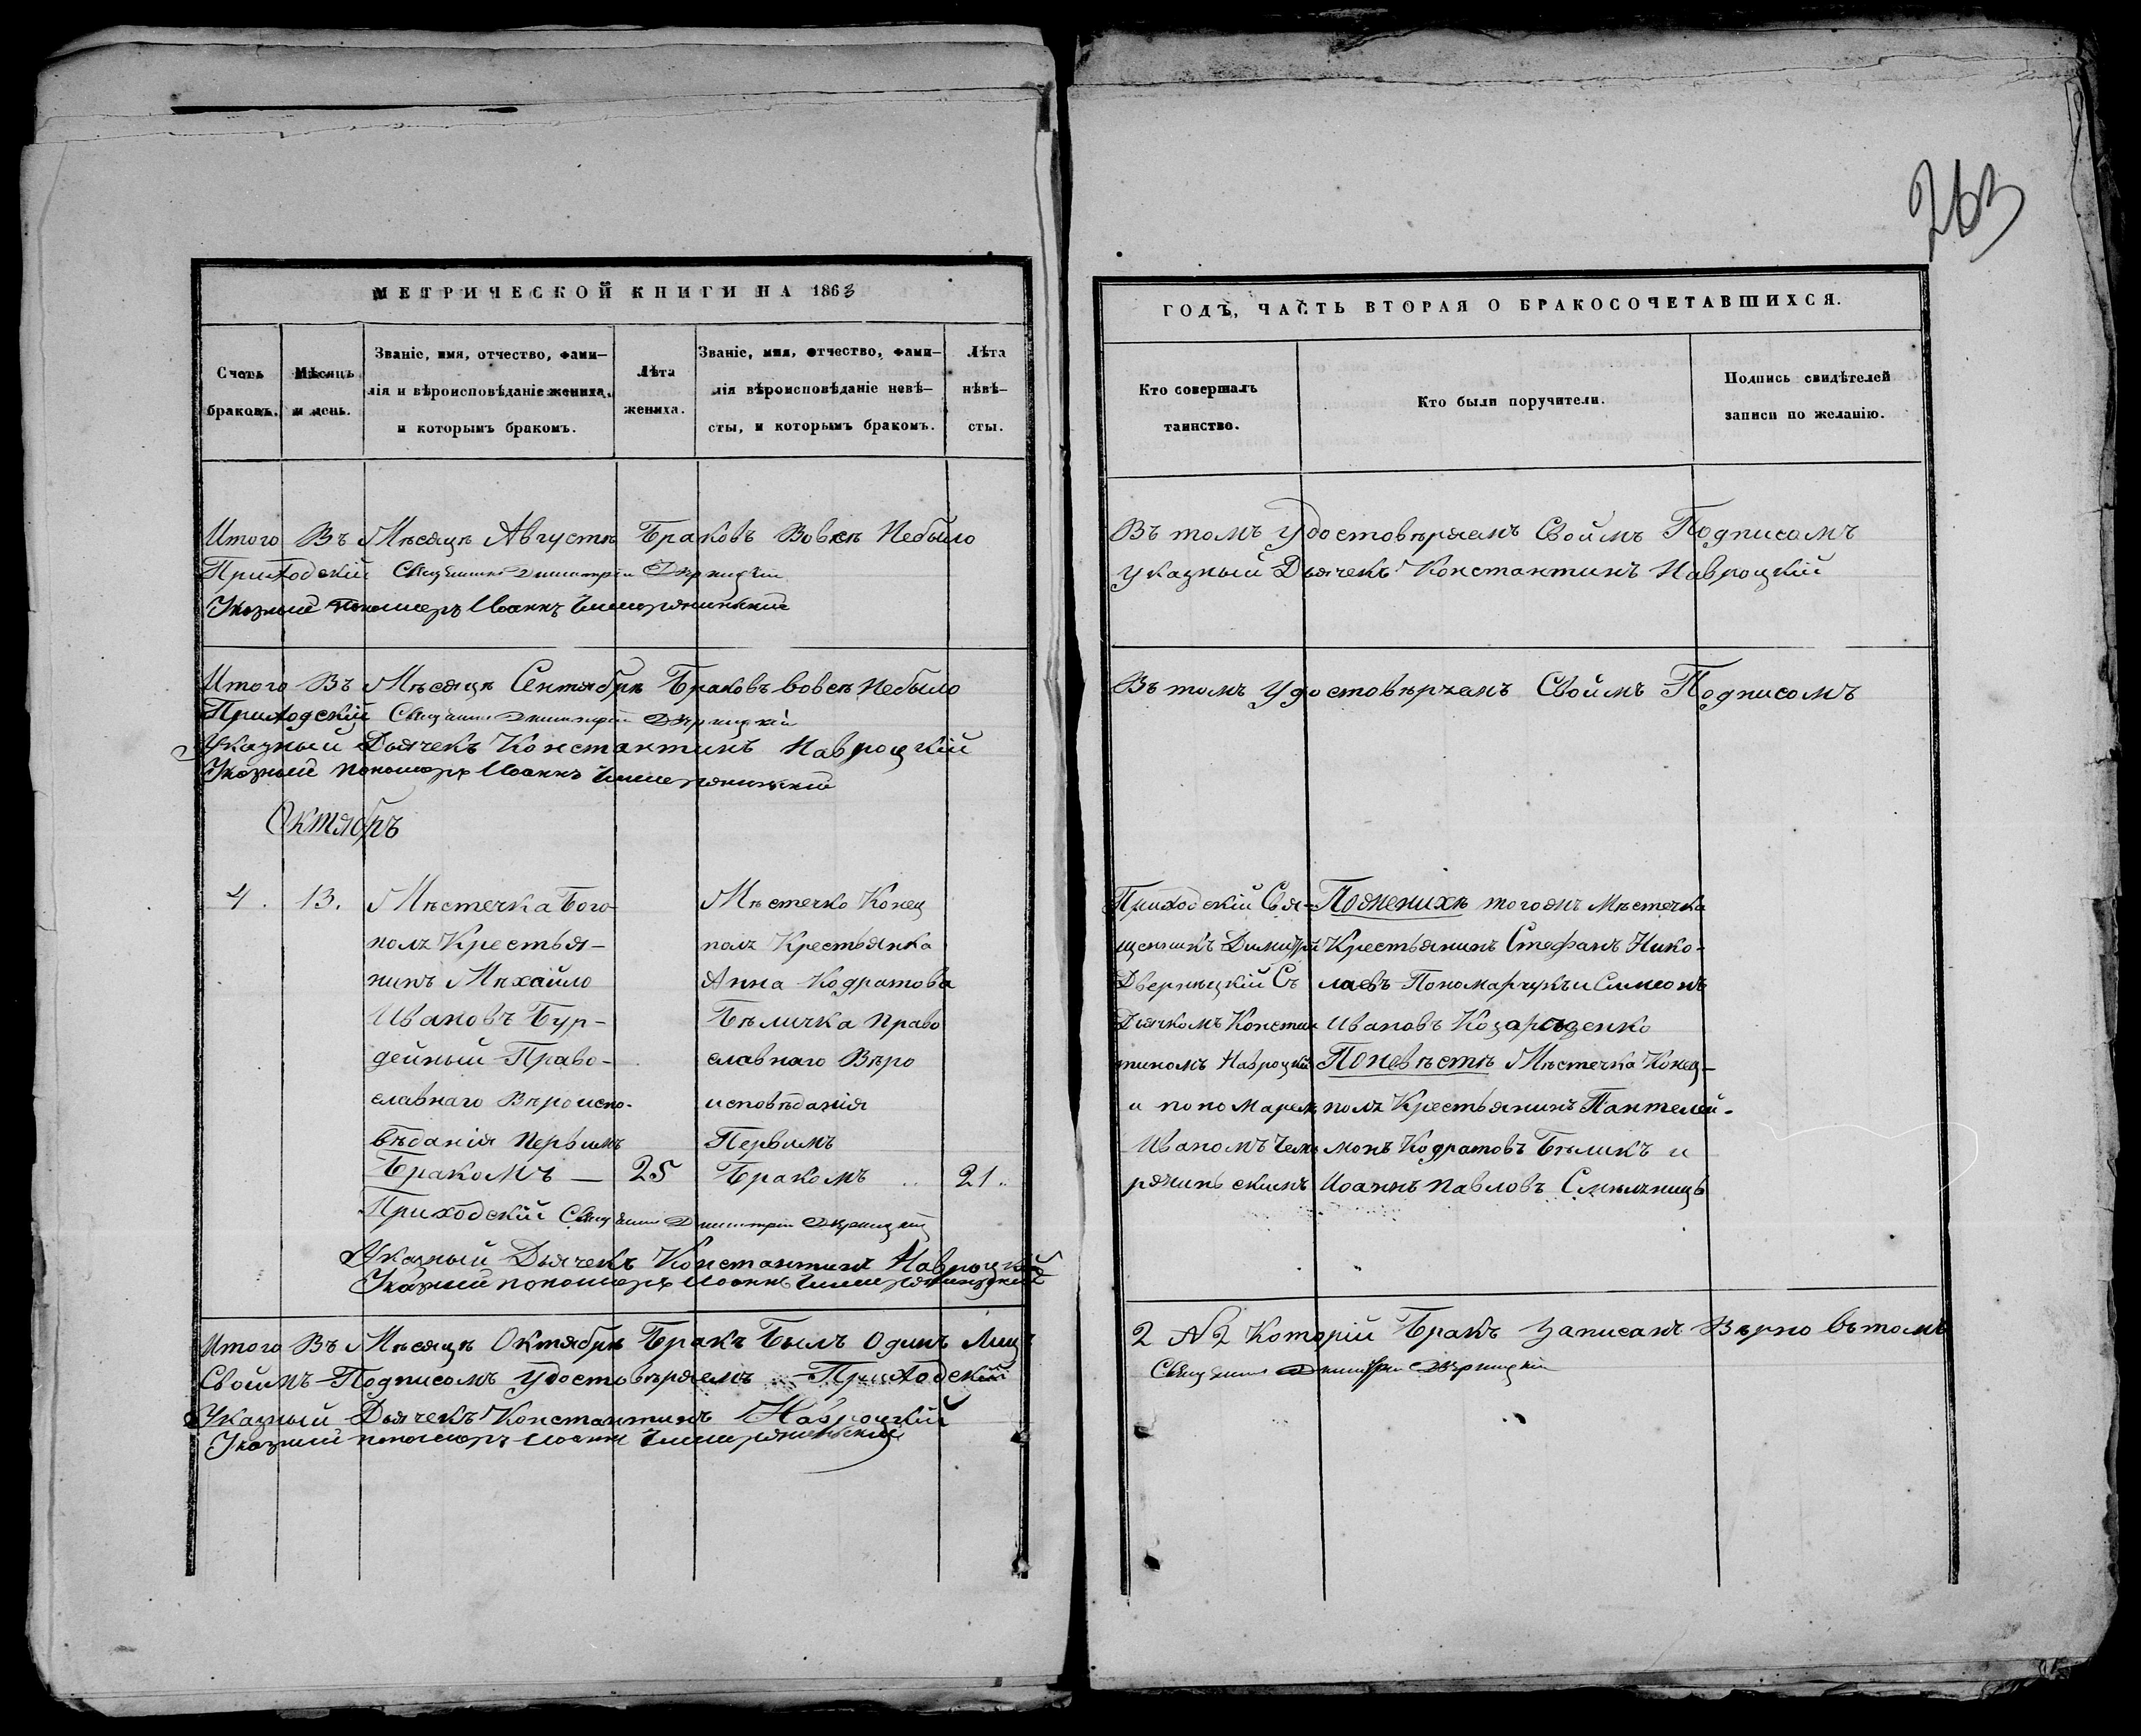 263
МЕТРИЧЕСКОЙ КНИГИ НА 1863
Счетъ браковъ.
Мѣсяцъ и день.
Званіе, имя, отчество, фами-
лія и вѣроисповѣданіе жениха,
и которымъ бракомъ.
Лѣта жениха.
Званіе, имя, отчество, фами-
лія вѣроисповѣданіе невѣ-
сты, и которымъ бракомъ.
Лѣта невѣ-
сты.
Итого Въ Мѣсяцѣ Августѣ Браковъ Вовсѣ Небыло
Приходскій
Указный пономаръ Іоаннъ
Итого Въ Мѣсяцѣ Сентябрѣ Браковъ вовсѣ небыло
Приходскій
Указный Дьячекъ Константинъ Навроцкій
Указный пономаръ Іоаннъ
Октябръ
4. 13.
Мѣстечка Бого-
полѧ Крестья-
нинъ Мѣхайло
Ивановъ Бур-
дейный Право-
славнаго Вѣроиспо-
вѣданія первымъ
Бракомъ — 25
Мѣстечко Конец
полѧ Крестьянка
Анна Кодратова
Бѣличка Право
славнаго Вѣро
исповѣданія
Первымъ
Бракомъ .. 21..
Приходскій
Указный Дьячекъ Константинъ Навроцкій
Указный пономаръ Іоаннъ
Итого Въ Мѣсяцѣ Октябрѣ Бракъ Былъ Одинъ Лицъ
Своимъ Подписомъ удостовѣряемъ Приходскій
Указный Дьячекъ Константинъ Навроцкій
Указный пономаръ Іоаннъ
ГОДЪ, ЧАСТЬ ВТОРАЯ О БРАКОСОЧЕТАВШИХСЯ.
Кто совершалъ
таинство.
Кто были поручители.
Подпись свидѣтелей
записи по желанію.
Въ томъ Удостовѣряемъ Своимъ Подписомъ
Указный Дьячекъ Константинъ Навроцкій
Въ томъ Удостовѣряемъ Своимъ Подписомъ
Приходскій Свя-
щенникъ Димитрій
Двернѣцкій Съ
Дьячкомъ Констан
тиномъ Навроцкій
и пономаремъ
Иваномъ Чеме
рянинъскимъ
Поженихѣ тогожъ мѣстечка
Крестьянинъ Стефанъ Нико-
лаевъ Пономарчукъ и Симеонъ
Ивановъ
Поневѣстѣ Мѣстечка Конец-
полѧ Крестьянинъ Пантелей-
монъ Кодратовъ Бѣликъ и
Иоаннъ Павловъ
2 №2 Которій Бракъ Записанъ Вѣрно въ томъ